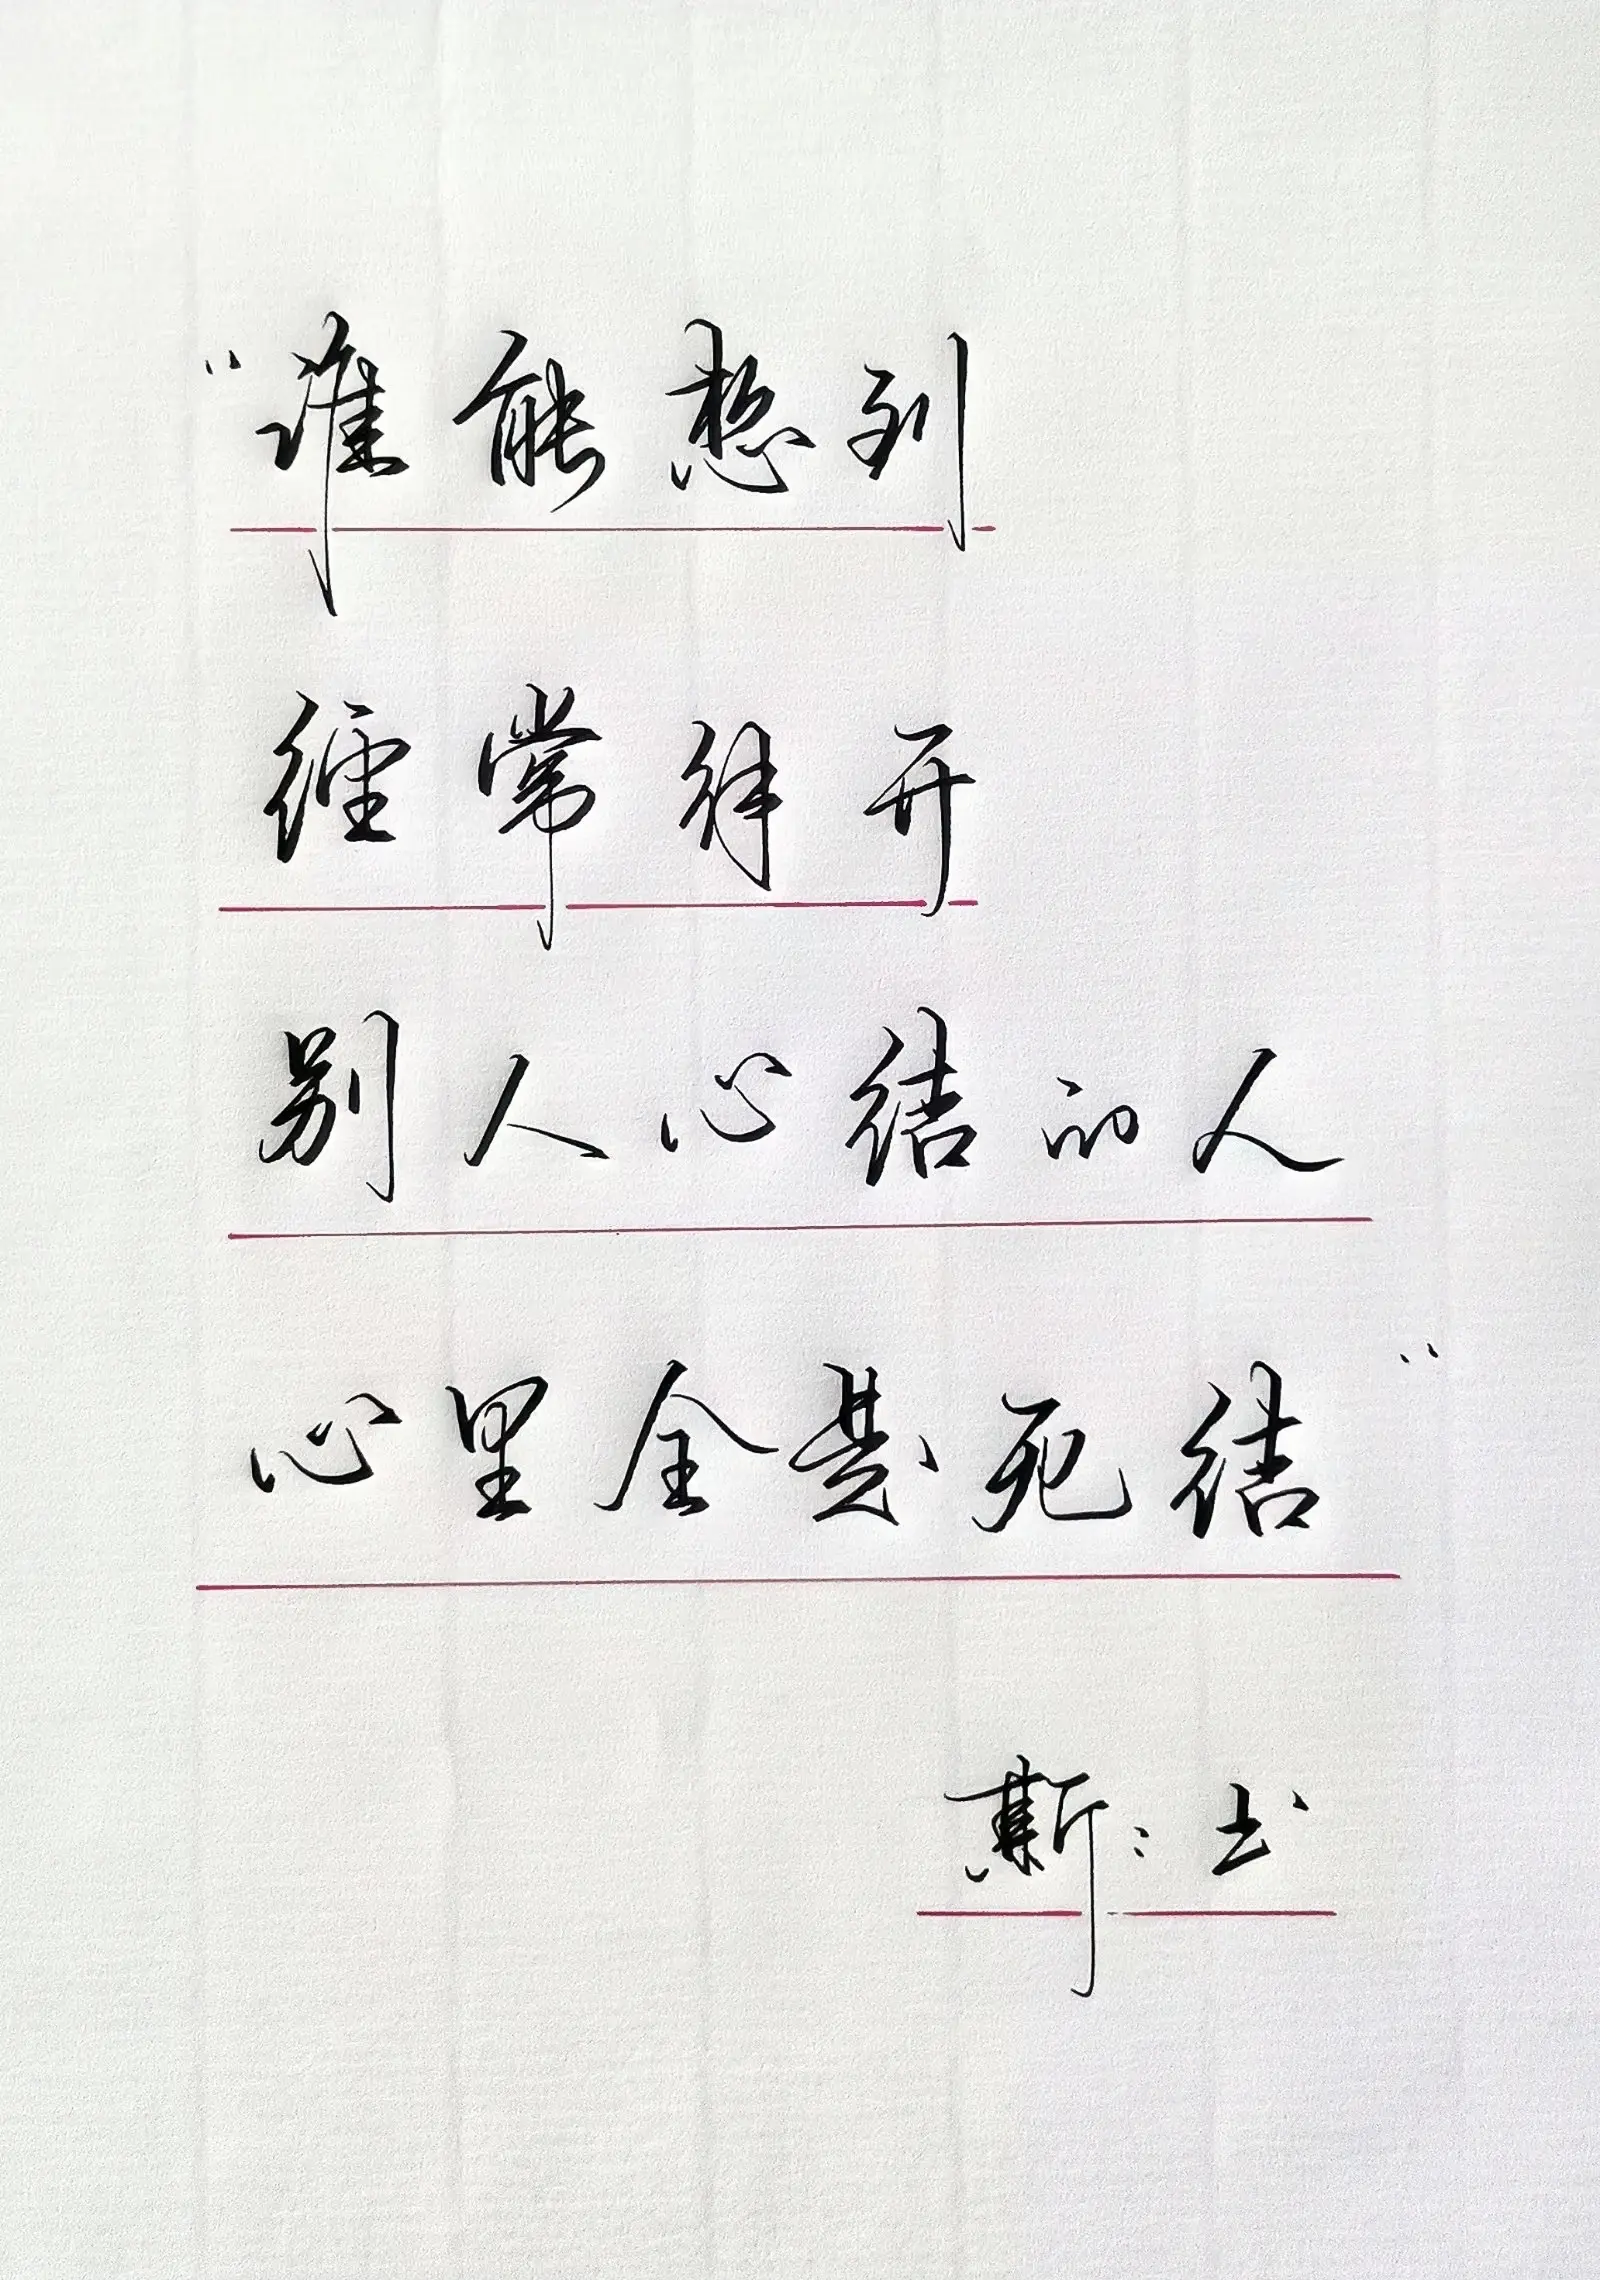 “谁能想到
经常解开
别人心结的人
心里全是死结”
斯:书